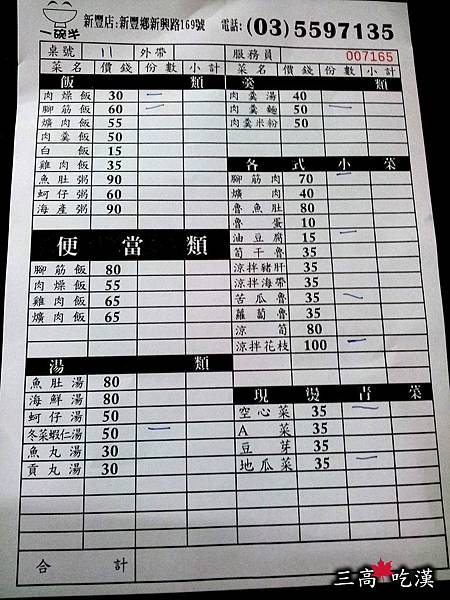 一碗半
新豐店:新豐鄉新興路169號 電話:(03)5597135
桌號 11 外帶 服務員 007165
菜名 價錢 份數 小計
飯類
肉燥飯 30
腳筋飯 60 一
爌肉飯 55
肉羹飯 50
白飯 15
雞肉飯 35
魚肚粥 90
蚵仔粥 60
海產粥 90
便當類
腳筋飯 80
肉燥飯 55
雞肉飯 65
爌肉飯 65
湯類
魚肚湯 80
海鮮湯 80
蚵仔湯 50
冬菜蝦仁湯 50 一
魚丸湯 30
貢丸湯 30
合計
菜名 價錢 份數 小計
羹類
肉羹湯 40
肉羹麵 50 一
肉羹米粉 50
各式小菜
腳筋肉 70 一
爌肉 40
魯魚肚 80
魯蛋 10
油豆腐 15 一
筍干魯 35
涼拌豬肝 35
涼拌海帶 35
苦瓜魯 35 一
蘿蔔魯 35
涼筍 80
涼拌花枝 100 一
現燙青菜
空心菜 35 一
A菜 35
豆芽 35
地瓜菜 35 一
三高吃漢